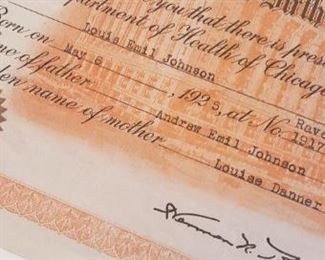 Birth
you that there is pres
partment of Health of Chicag
Louis Emil Johnson
Born on May 6, 1925, at No. 1917 Rav
me of father Andrew Emil Johnson
den name of mother Louise Danner
Herman N.